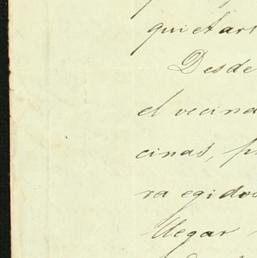 quietar
Desde
el vecina
cinas, p
ra egidos
llegar